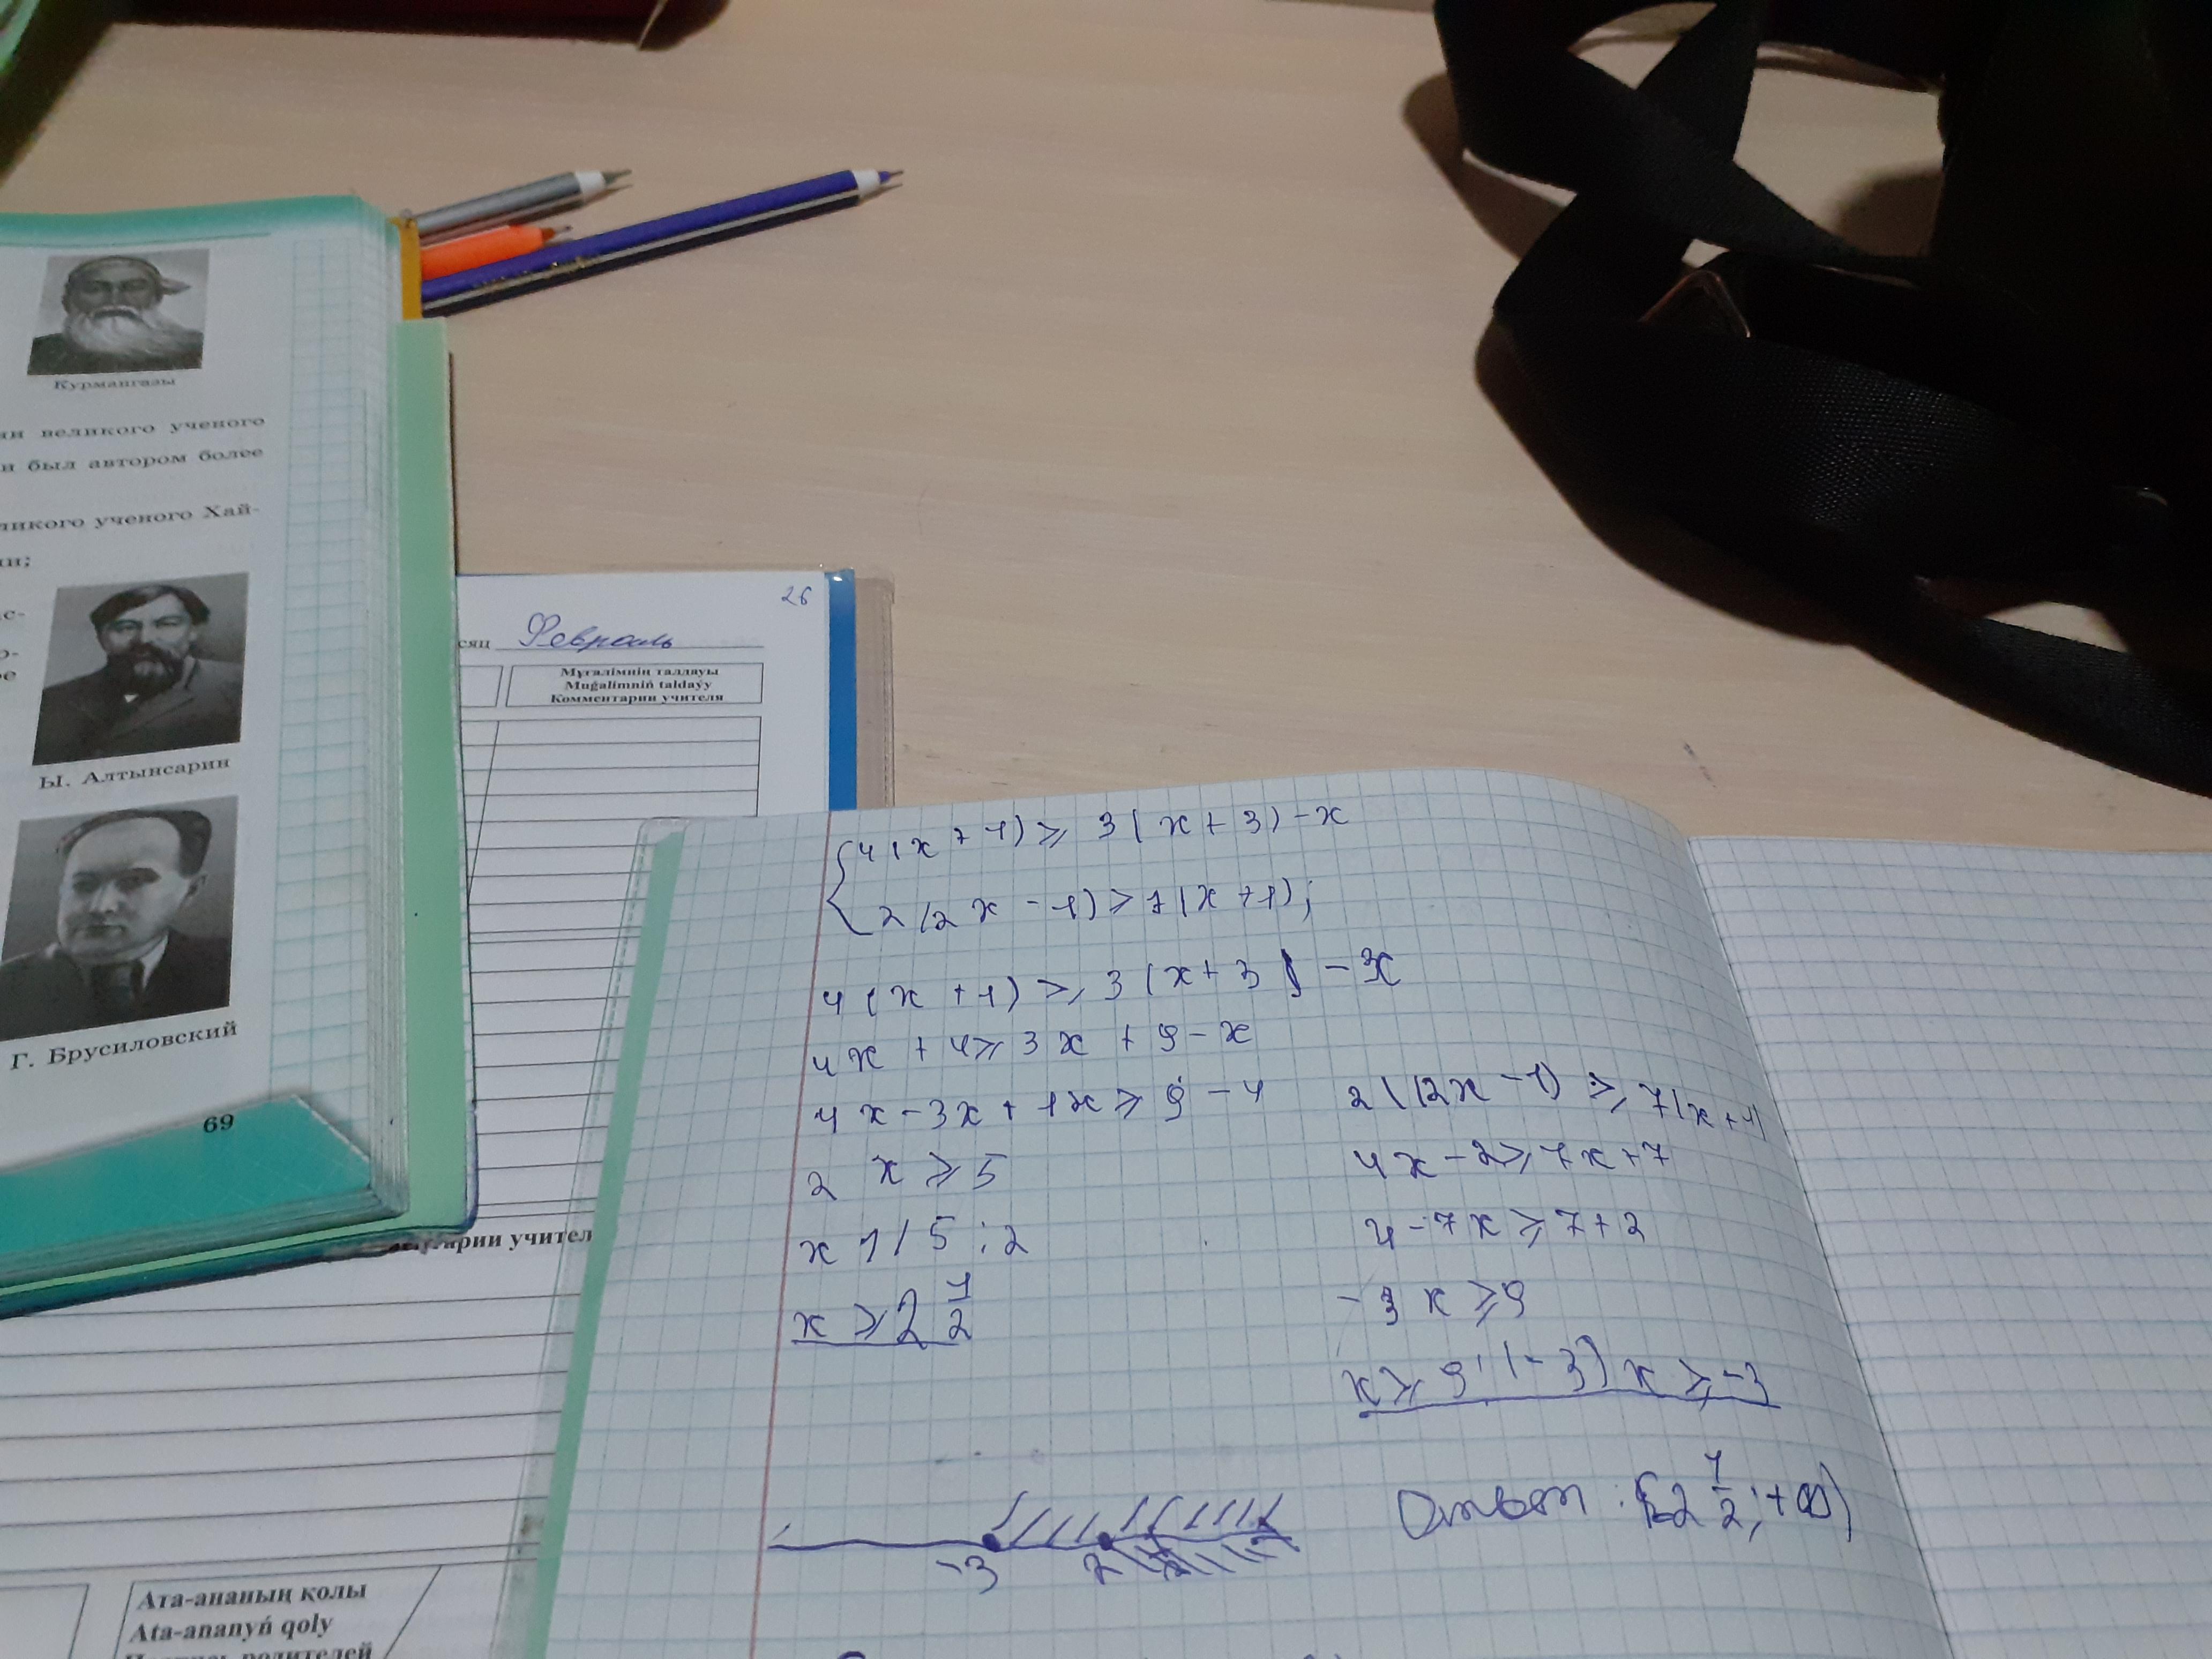 Курмангазы
ии великого ученого
и был автором более
ликого ученого Хай-
ии;
ас-
о-
е
Ы. Алтынсарин
Г. Брусиловский
69
26
сяц Февраль
Мұғалімнің талдауы
Muǵalimniń taldaýy
Комментарии учителя
арии учител
Ата-ананың қолы
Ata-ananyń qoly
родителей
{4(x+1)≥3(x+3)-x
2(2x-1)≥7(x+1);
4(x+1)≥3(x+3)-x
4x+4≥3x+9-x
4x-3x+1x≥9-4
2x≥5
x 1/5:2
x≥2 1/2
2((2x-1)≥7(x+1)
4x-2≥7x+7
4-7x≥7+2
-3x≥9
x≥9:(-3) x≥-3
-3 2
Ответ: [2 1/2; +∞)